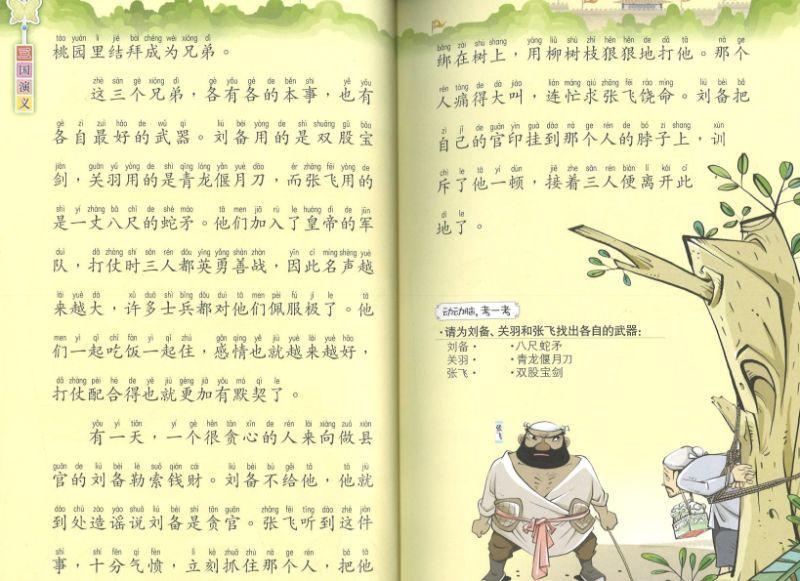 三国演义
táo yuán lǐ jié bài chéng wéi xiōng dì
桃园里结拜成为兄弟。
zhè sān gè xiōng dì gè yǒu gè de běn shi yě yǒu
这三个兄弟，各有各的本事，也有
gè zì zuì hǎo de wǔ qì liú bèi yòng de shì shuāng gǔ bǎo
各自最好的武器。刘备用的是双股宝
jiàn guān yǔ yòng de shì qīng lóng yǎn yuè dāo ér zhāng fēi yòng de
剑，关羽用的是青龙偃月刀，而张飞用的
shì yí zhàng bā chǐ de shé máo tā men jiā rù le huáng dì de jūn
是一丈八尺的蛇矛。他们加入了皇帝的军
duì dǎ zhàng shí sān rén dōu yīng yǒng shàn zhàn yīn cǐ míng shēng yuè
队，打仗时三人都英勇善战，因此名声越
lái yuè dà xǔ duō shì bīng dōu duì tā men pèi fú jí le tā
来越大，许多士兵都对他们佩服极了。他
men yì qǐ chī fàn yì qǐ zhù gǎn qíng yě jiù yuè lái yuè hǎo
们一起吃饭一起住，感情也就越来越好，
dǎ zhàng pèi hé de yě jiù gèng jiā yǒu mò qì le
打仗配合得也就更加有默契了。
yǒu yì tiān yí gè hěn tān xīn de rén lái xiàng zuò xiàn
有一天，一个很贪心的人来向做县
guān de liú bèi lè suǒ qián cái liú bèi bù gěi tā tā jiù
官的刘备勒索钱财。刘备不给他，他就
dào chù zào yáo shuō liú bèi shì tān guān zhāng fēi tīng dào zhè jiàn
到处造谣说刘备是贪官。张飞听到这件
shì shí fēn qì fèn lì kè zhuā zhù nà ge rén bǎ tā
事，十分气愤，立刻抓住那个人，把他
bǎng zài shù shang yòng liǔ shù zhī hěn hěn de dǎ tā nà ge
绑在树上，用柳树枝狠狠地打他。那个
rén tòng de dà jiào lián máng qiú zhāng fēi ráo mìng liú bèi bǎ
人痛得大叫，连忙求张飞饶命。刘备把
zì jǐ de guān yìn guà dào nà ge rén de bó zi shàng xùn
自己的官印挂到那个人的脖子上，训
chì le tā yí dùn jiē zhe sān rén biàn lí kāi cǐ
斥了他一顿，接着三人便离开此
dì le
地了。
动动脑，考一考
·请为刘备、关羽和张飞找出各自的武器：
刘备· ·八尺蛇矛
关羽· ·青龙偃月刀
张飞· ·双股宝剑
张飞